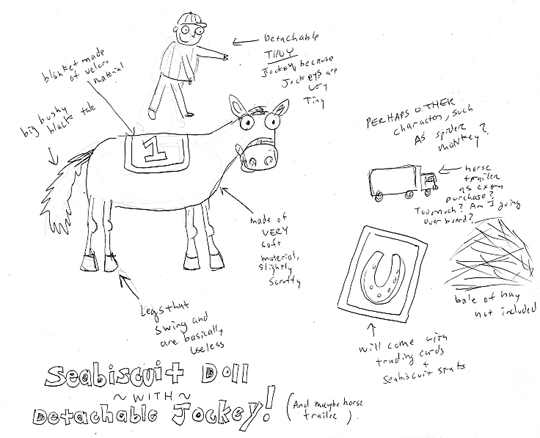 Detachable
TINY
Jockey, because
Jockeys are
very
Tiny
blanket made
of velcro
material
big bushy
black tale
1
PERHAPS OTHER
charactors, such
As spider
monkey?
horse
trailer
as extra
purchase?
Too much? Am I going
overboard?
made of
VERY
soft
material,
slightly
scruffy
bale of hay
not included
Legs that
swing and
are basically
useless
will come with
trading cards
+
Seabiscuit stats
Seabiscuit Doll
~ WITH ~
Detachable Jockey!
(And maybe horse
trailer).